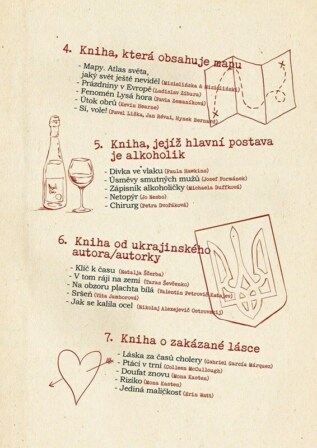 4. Kniha, která obsahuje mapu
- Mapy. Atlas světa,
jaký svět ještě neviděl (Mizielińska & Mizieliński)
- Prázdniny v Evropě (Ladislav Zibura)
- Fenomén Lysá hora (Pavla Zemaníková)
- Útok orbů (Kevin Hearne)
- Sí, vole! (Pavel Liška, Jan Révai, Hynek Bernard)
5. Kniha, jejíž hlavní postava
je alkoholik
- Dívka ve vlaku (Paula Hawkins)
- Úsměvy smutných mužů (Josef Formánek)
- Zápisník alkoholičky (Michaela Duffková)
- Netopýr (Jo Nesbo)
- Chirurg (Petra Dvořáková)
6. Kniha od ukrajinského
autora/autorky
- Klíč k času (Natalja Ščerba)
- V tom rájí na zemi (Taras Ševčenko)
- Na obzoru plachta bílá (Valentin Petrovič Katajev)
- Sršeň (Vita Jamborová)
- Jak se kalila ocel (Nikolaj Alexejevič Ostrovskij)
7. Kniha o zakázané lásce
- Láska za časů cholery (Gabriel García Márquez)
- Ptáci v trní (Colleen McCullough)
- Doufat znovu (Mona Kasten)
- Riziko (Mona Kasten)
- Jediná maličkost (Erin Watt)